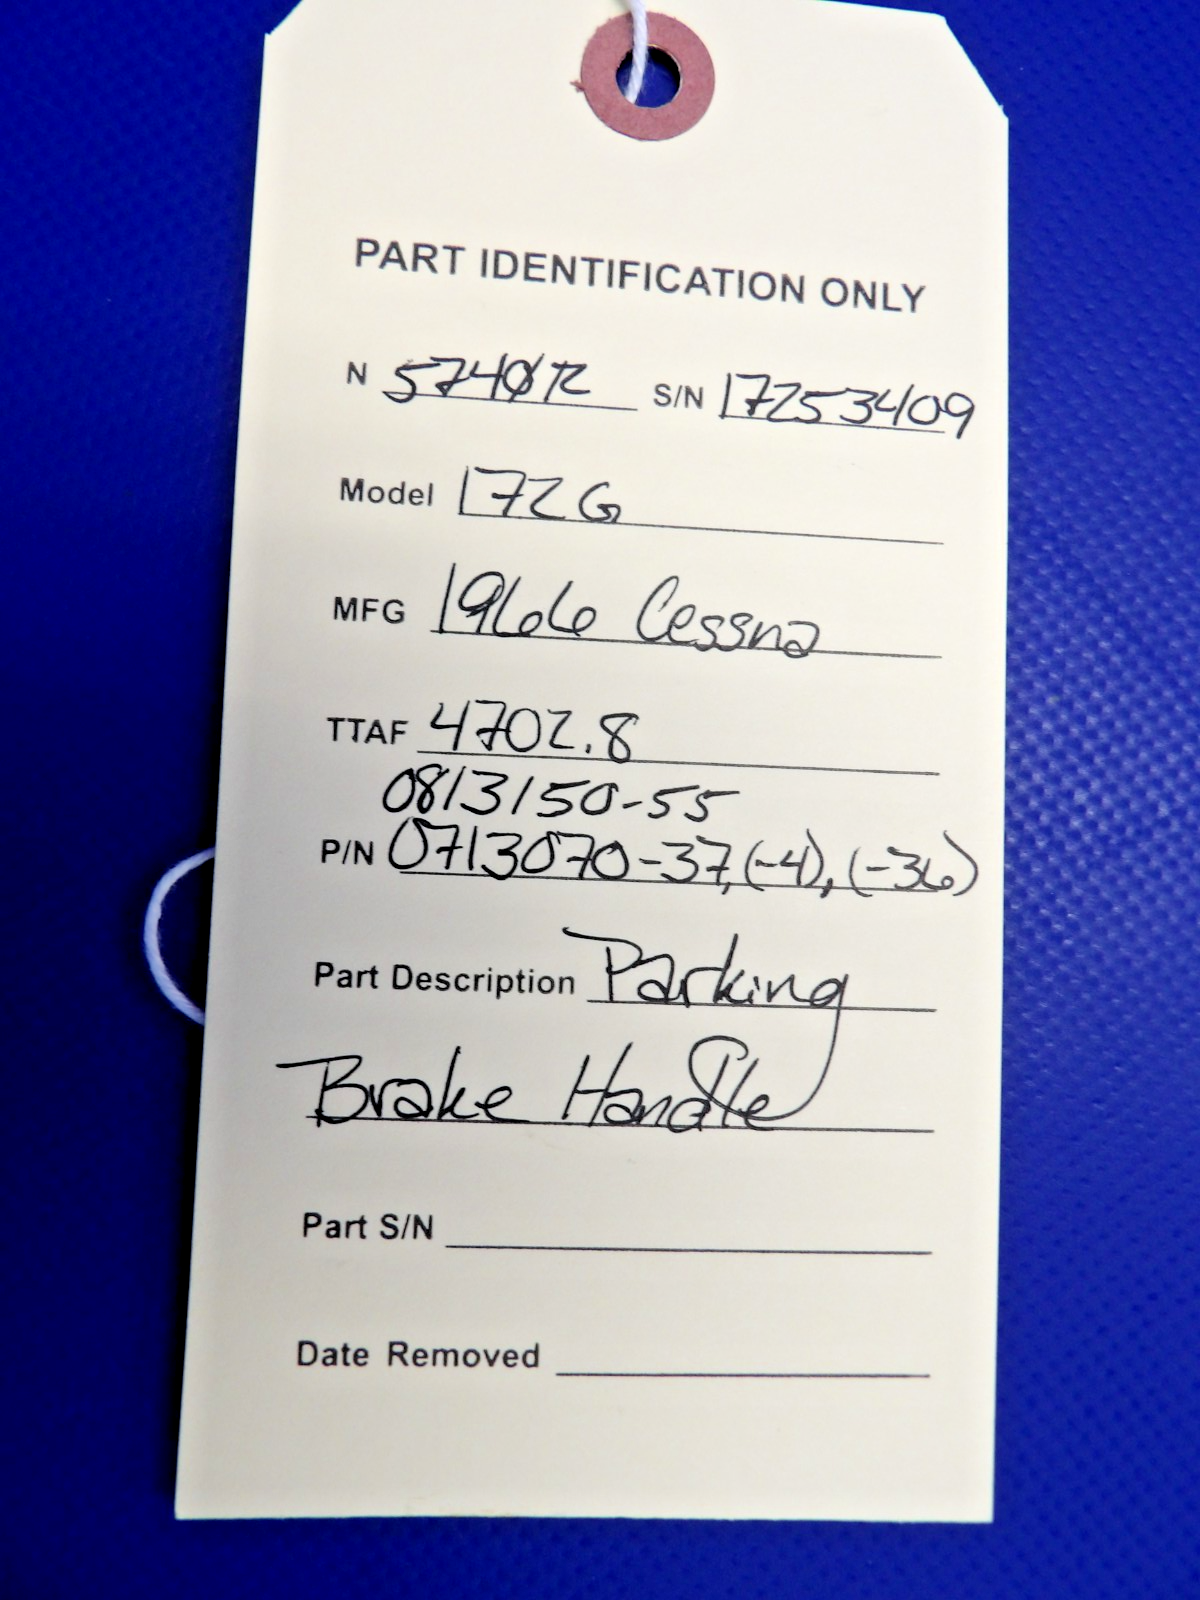 PART IDENTIFICATION ONLY
N 5740R S/N 17253409
Model 172G
MFG 1966 Cessna
TTAF 4702.8
0813150-55
P/N 0713070-37, (-4), (-36)
Part Description Parking
Brake Handle
Part S/N
Date Removed